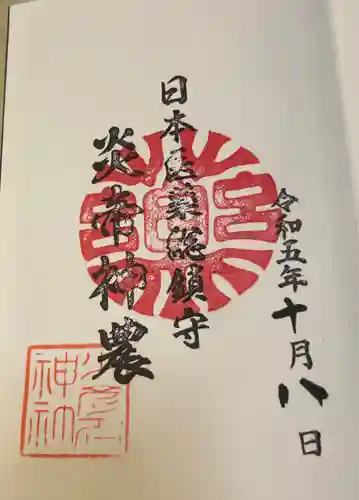 令和五年十月八日
日本医薬総鎮守
炎帝神農
少彦名神社